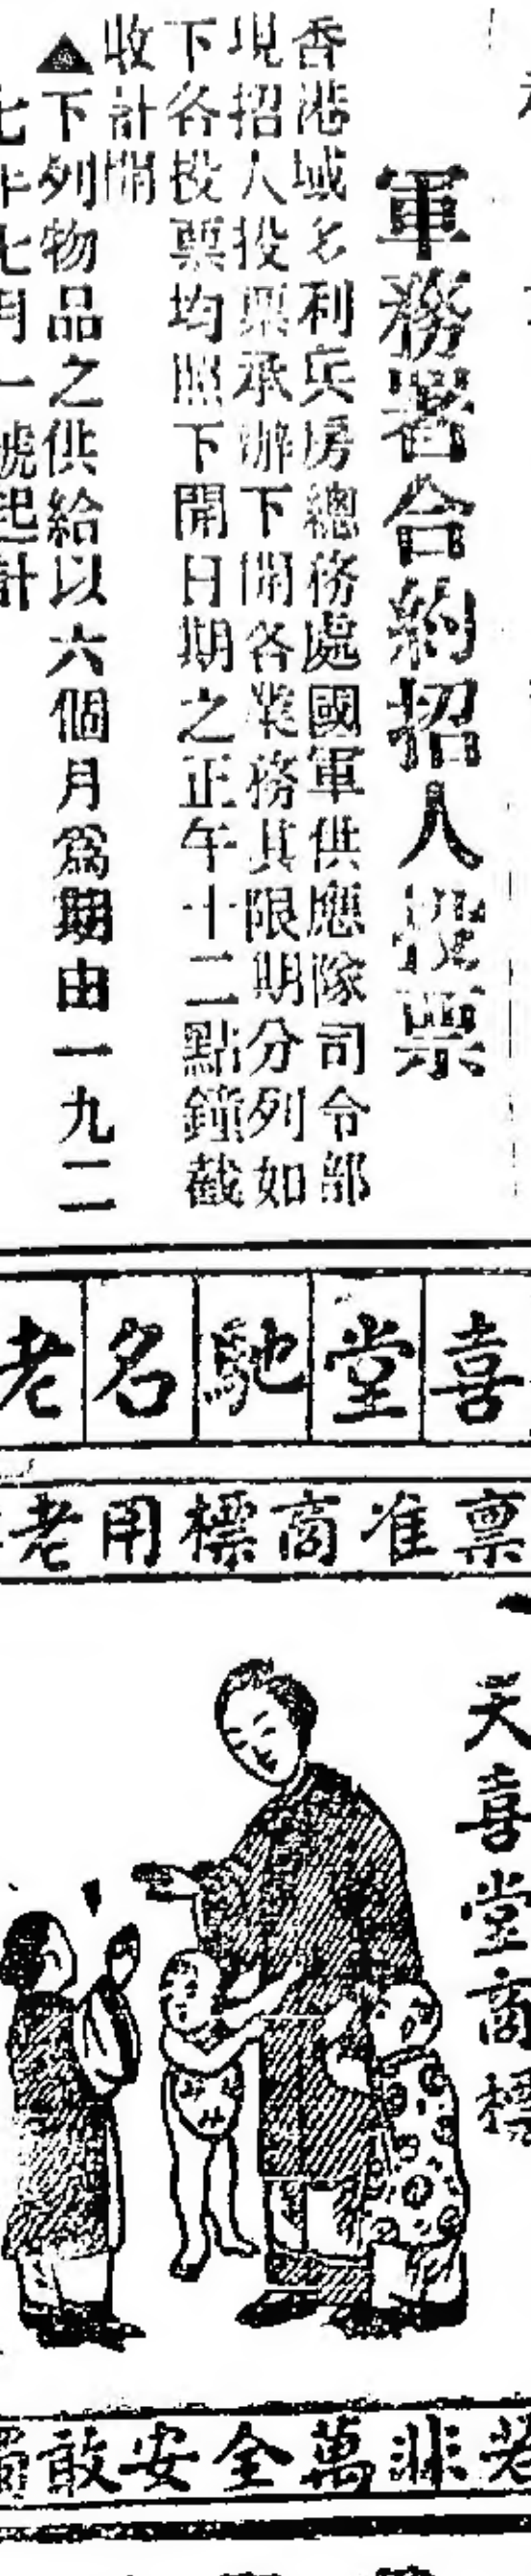 軍務署合約招人投票
香港域多利兵房總務處國軍供應隊司令部
現招人投票承辦下開各業務其限期分列如
下各投票均照下開日期之正午十二點鐘截
收計開
▲下列物品之供給以六個月爲期由一九二
七年七月一號起計
喜堂馳名老
禀准商標用老
天喜堂商標
若非萬全安敢